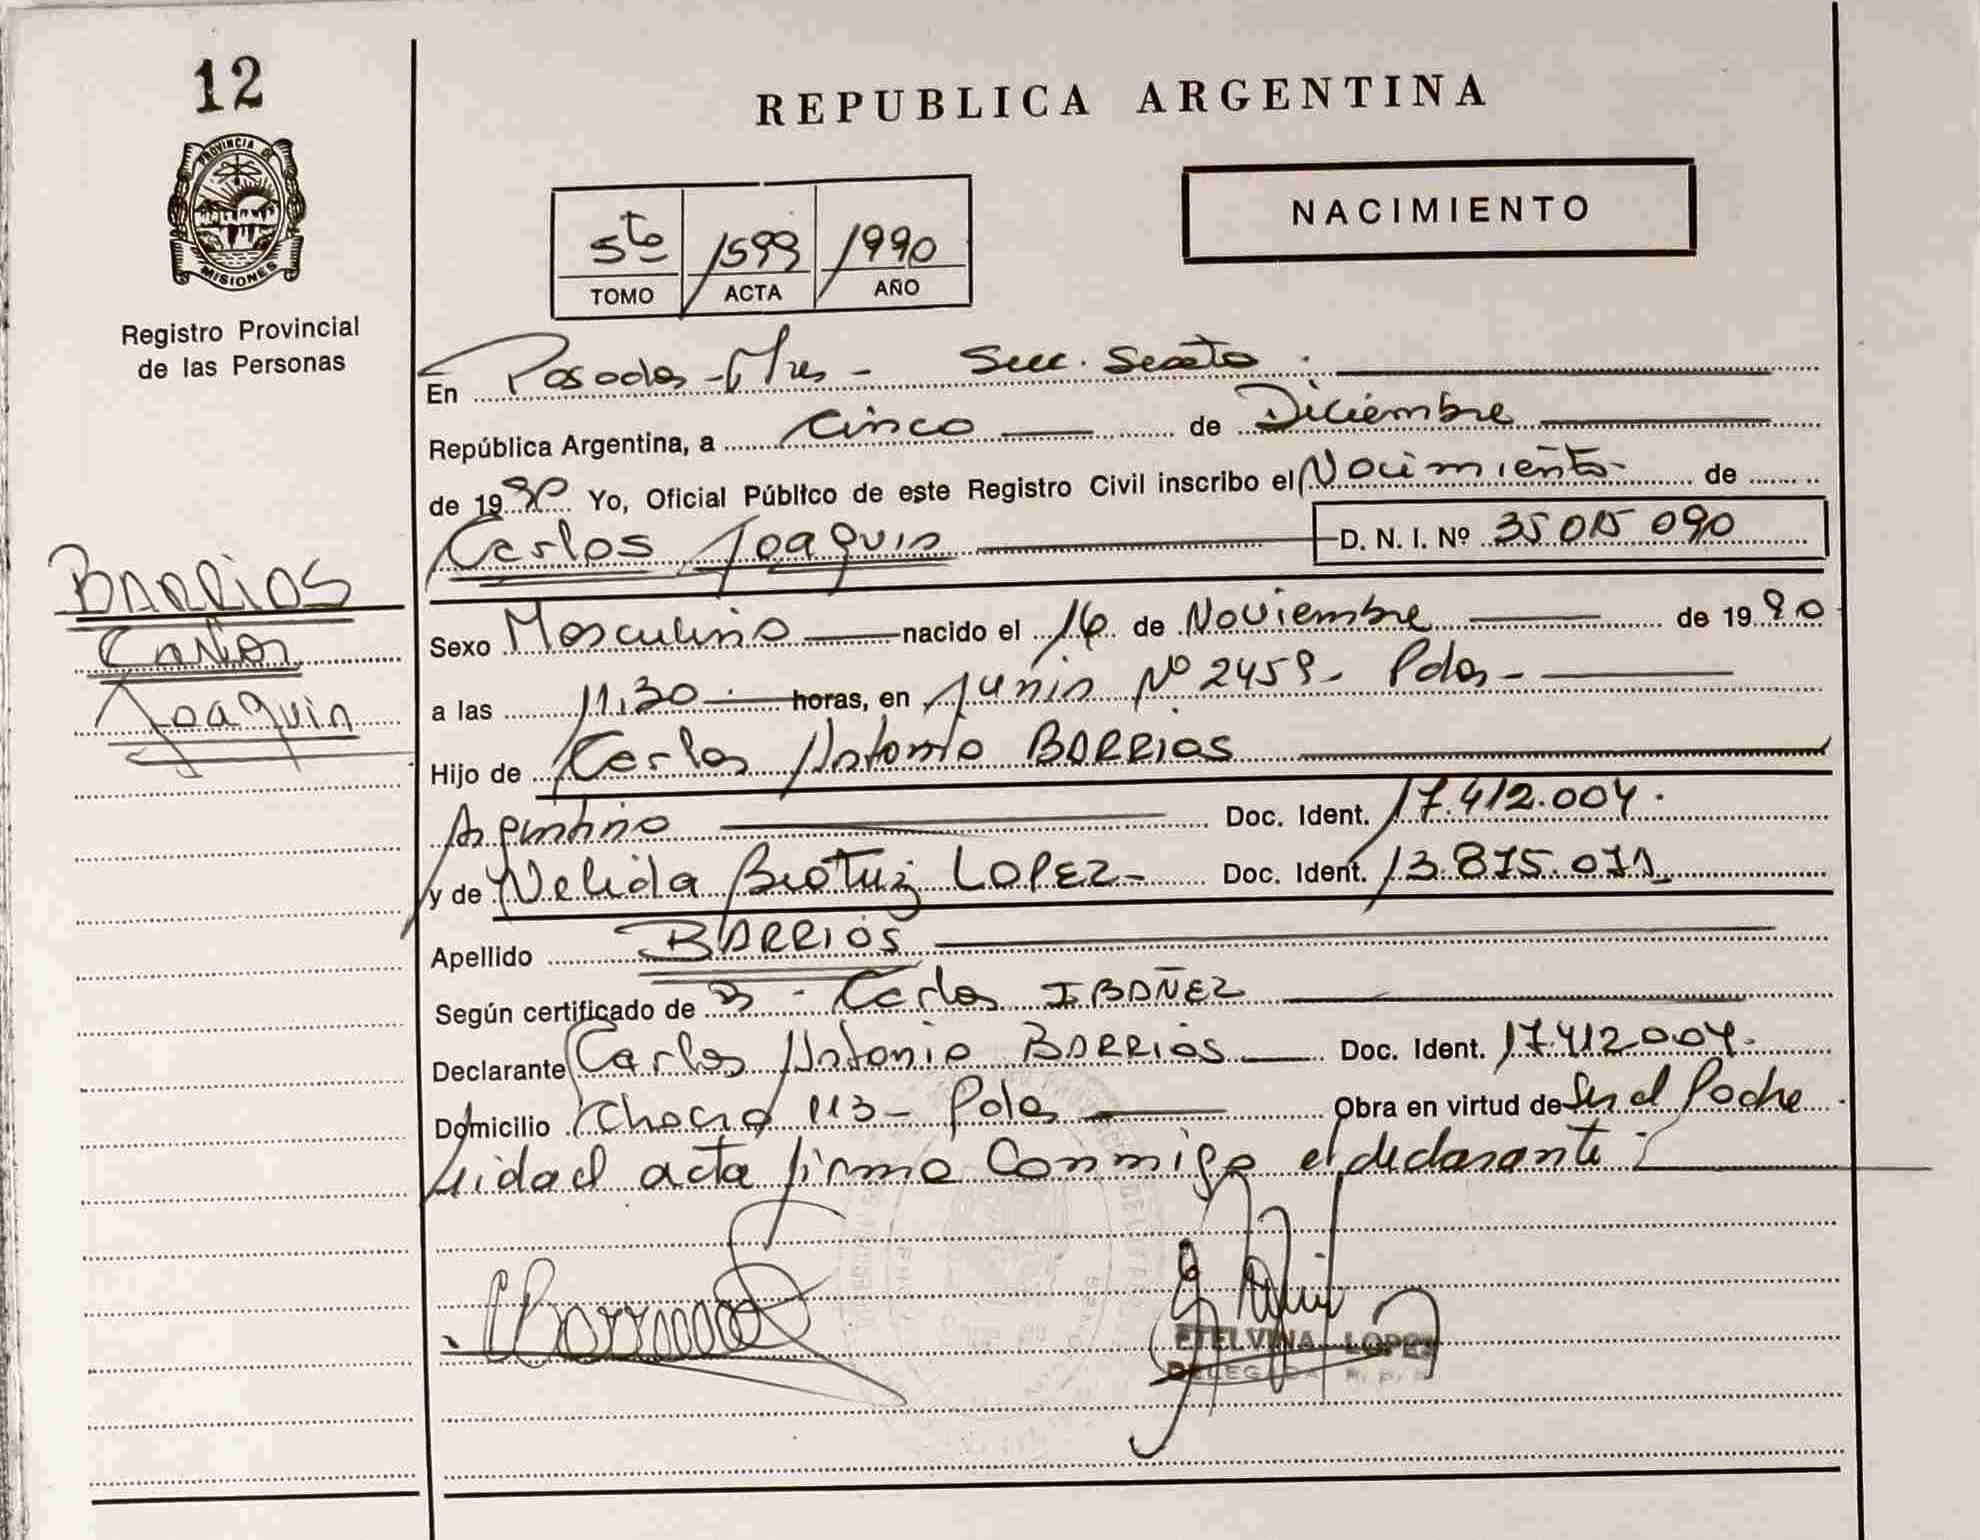 12
REPUBLICA ARGENTINA
PROVINCIA DE
MISIONES
Registro Provincial
de las Personas
NACIMIENTO
5to 1599 1990
TOMO ACTA AÑO
En Posadas - Mnes - Secc. Sexta
República Argentina, a cinco de Diciembre
de 1990 Yo, Oficial Público de este Registro Civil inscribo el Nacimiento de
Carlos Joaquin D. N. I. Nº 35 015 090
BARRIOS
Carlos
Joaquin
Sexo Masculino nacido el 16 de Noviembre de 1990
a las 11,30 horas, en Junin Nº 2459 - Pdas -
Hijo de Carlos Antonio BARRIOS
Argentino Doc. Ident. 17.412.004.
y de Nelida Beatriz LOPEZ - Doc. Ident. 13.875.071
Apellido BARRIOS
Según certificado de - Carlos IBAÑEZ
Declarante Carlos Antonio BARRIOS Doc. Ident. 17.412.004.
Domicilio Chacra 113 - Pdas Obra en virtud de Ser el Padre
Leida el acta firma conmigo el declarante
ETELVINA LOPEZ
DELEGADA R. P. P.